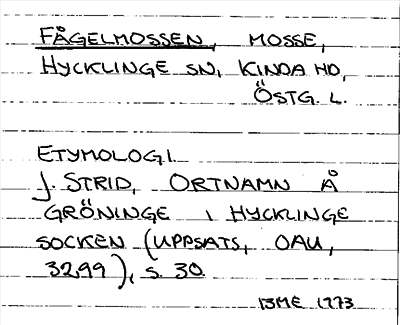 FÅGELMOSSEN, MOSSE,
HYCKLINGE SN, KINDA HD,
ÖSTG. L.
ETYMOLOGI.
J. STRID, ORTNAMN Å
GRÖNINGE I HYCKLINGE
SOCKEN (UPPSATS, OAU,
3299), S. 30.